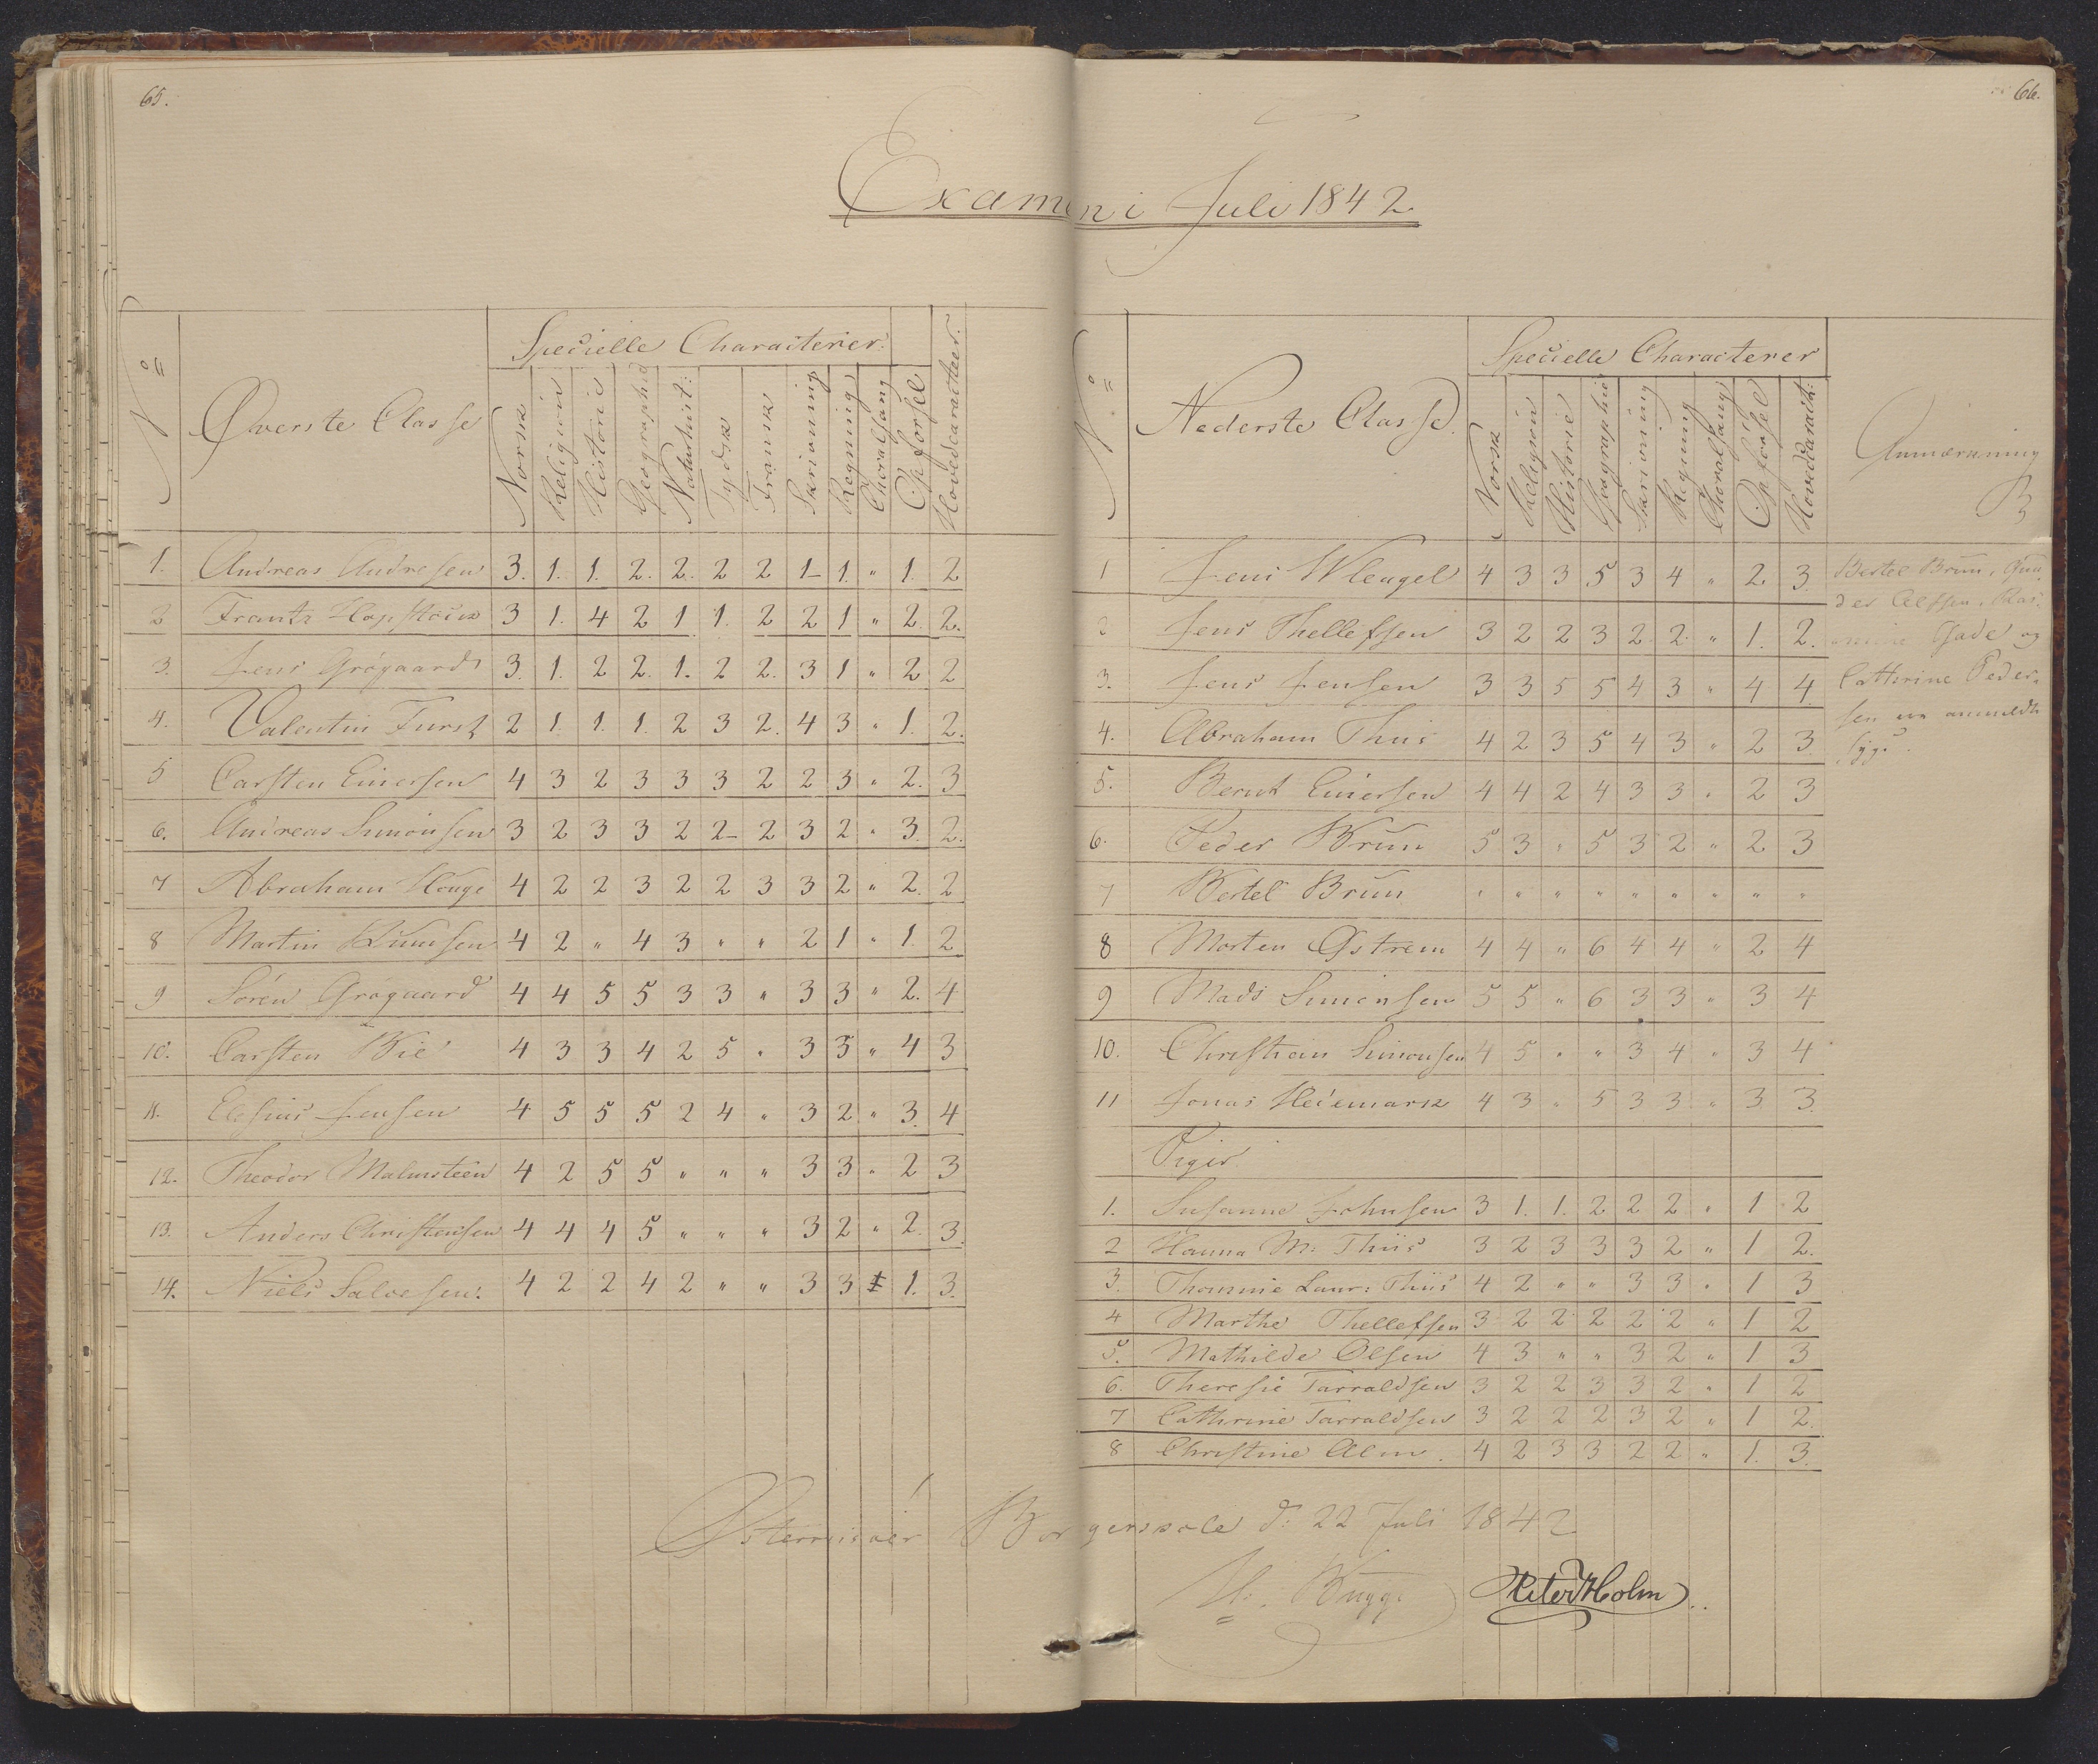 65.
66.
Examen i Juli 1842.
No
Øverste Classe
Specielle Characterer.
Norsk Religion Historie Geographie Naturhist: Tydsk Fransk Skrivning Regning Choralsang Opførsel Hovedcaracteer.
1. Andreas Andresen 3. 1. 1. 2. 2. 2 2 1 1. " 1. 2
2 Frantz 3 1. 4 2 1 1. 2 2 1 " 2. 2.
3. Jens Grøgaard 3. 1. 2 2. 1. 2 2. 3 1 " 2 2
4. Valentin Furst 2 1 1. 1. 2 3 2. 4 3 " 1. 2.
5 Carsten Einersen 4 3 2 3 3 3 2 2 3 " 2. 3
6. Andreas Simonsen 3 2 3 3 2 2 2 3 2 " 3. 2.
7 Abraham Houge 4 2 2 3 2 2 3 3 2 " 2. 2
8 Martin Knudsen 4 2 " 4 3 " " 2 1 " 1. 2
9 Søren Grøgaard 4 4 5 5 3 3 " 3 3 " 2. 4
10. Carsten Bie 4 3 3 4 2 5 " 3 3 " 4 3
11. Elesius Jensen 4 5 5 5 2 4 " 3 2 " 3. 4
12. Theodor Malmsteen 4 2 5 5 " " " 3 3 " 2 3
13. Anders Christensen 4 4 4 5 " " " 3 2 " 2. 3.
14. Niels Salvesen. 4 2 2 4 2 " " 3 3 1. 3.
No
Nederste Classe.
Specielle Characterer
Norsk Religion Historie Geographie Skrivning Regning Choralsang Opførsel Hovedcaract:
Anmærkning
1 Jens Wleugel 4 3 3 5 3 4 " 2. 3.
2 Jens Thellefsen 3 2 2 3 2 2. " 1. 2.
3. Jens Jensen 3 3 5 5 4 3 " 4 4
4. Abraham Thiis 4 2 3 5 4 3 " 2 3
5. Bernt Einersen 4 4 2 4 3 3 " 2 3
6. Peder Brun 5 3 " 5 3 2 " 2 3
7 Bertel Brun " " " " " " " " "
8 Morten Østrem 4 4 " 6 4 4 " 2 4
9 Mads Simonsen 5 5 " 6 3 3 " 3 4
10. Christian Simonsen 4 5 " " 3 4 " 3 4
11 Jonas Hedemark 4 3 " 5 3 3 " 3 3.
Piger
1. Susanne Johnsen 3 1. 1. 2 2 2 " 1 2
2 Hanna M: Thiis 3 2 3 3 3 2 " 1 2.
3. Thomine Laur: Thiis 4 2 " " 3 3 " 1 3
4 Marthe Thellefsen 3 2 2 2 2 2 " 1 2
5. Mathilde Olsen 4 3 " " 3 2 " 1 3
6. Theresie Tarraldsen 3 2 2 3 3 2 " 1 2
7 Cathrine Tarraldsen 3 2 2 2 3 2 " 1 2.
8 Christine Alm. 4 2 3 3 2 2 " 1. 3.
Bertel Brun,
Gade og
Cathrine Peder-
sen ere anmeldte
syge.
Østerriisøer Borgerskole d: 22 Juli 1842
M. Bugge Peter Holm